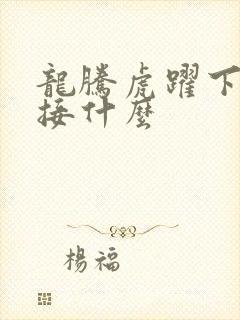 龍騰虎躍下
接什麼
楊福